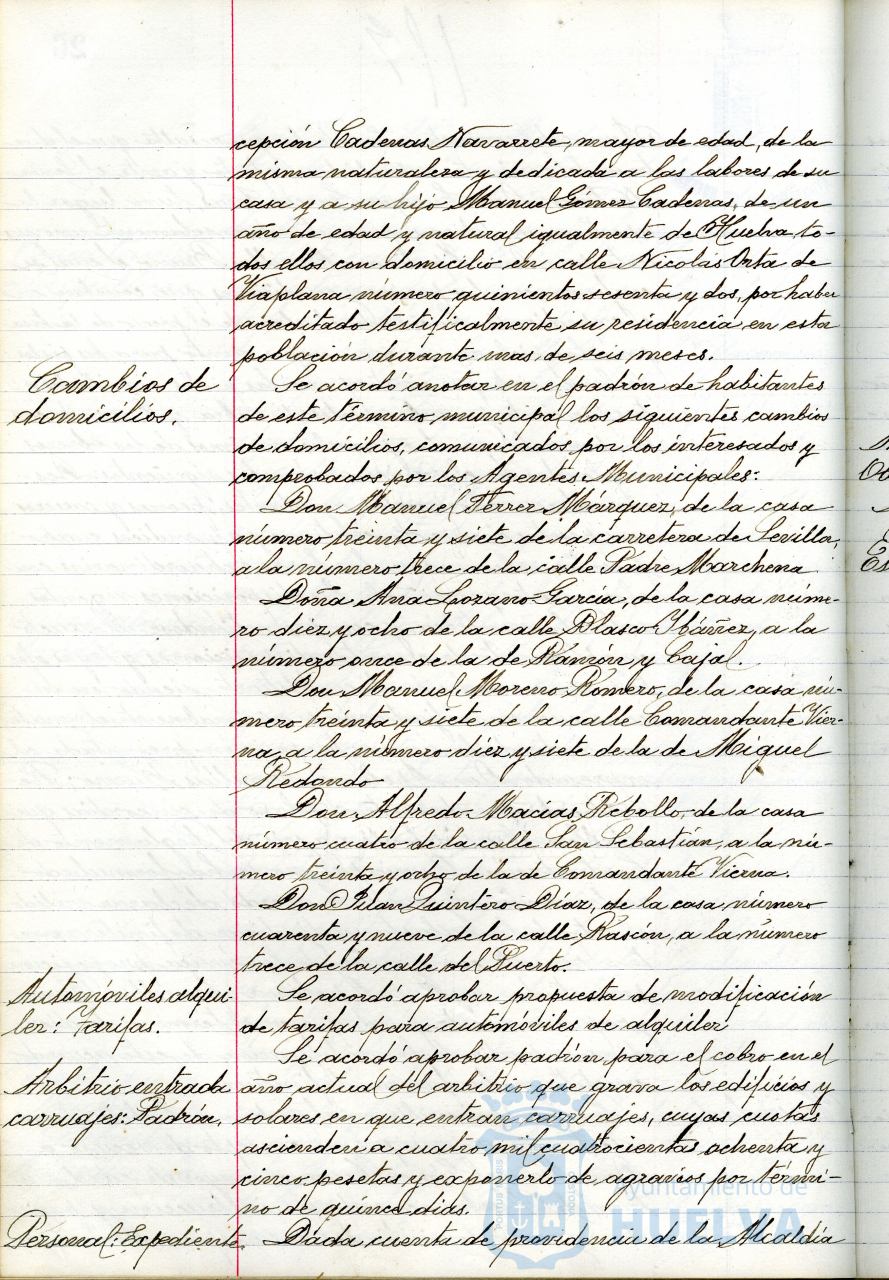 cepción Cadenas Navarrete, mayor de edad, de la
misma naturaleza y dedicada a las labores de su
casa y a su hijo Manuel Gómez Cadenas, de un
año de edad y natural igualmente de Huelva to-
dos ellos con domicilio en calle Nicolás Orta de
Viaplana número quinientos sesenta y dos, por haber
acreditado testificalmente su residencia en esta
población durante mas de seis meses.
Cambios de
domicilios.
Se acordó anotar en el padrón de habitantes
de este término municipal los siguientes cambios
de domicilios, comunicados por los interesados y
comprobados por los Agentes Municipales:
Don Manuel Ferrer Márquez, de la casa
número treinta y siete de la carretera de Sevilla,
a la número trece de la calle Padre Marchena
Doña Ana Lozano García, de la casa núme-
ro diez y ocho de la calle Blasco Ybáñez, a la
número once de la de Ramón y Cajal.
Don Manuel Moreno Romero, de la casa nú-
mero treinta y siete de la calle Comandante Vier-
na, a la número diez y siete de la de Miguel
Redondo
Don Alfredo Macías Rebollo, de la casa
número cuatro de la calle San Sebastián, a la nú-
mero treinta y ocho de la de Comandante Vierna.
Don Juan Quintero Díaz, de la casa número
cuarenta y nueve de la calle Rascón, a la número
trece de la calle del Puerto.
Automóviles alqui-
ler: Tarifas.
Se acordó aprobar propuesta de modificación
de tarifas para automóviles de alquiler
Arbitrio entrada
carruajes: Padrón.
Se acordó aprobar padrón para el cobro en el
año actual del arbitrio que grava los edificios y
solares en que entran carruajes, cuyas cuotas
ascienden a cuatro mil cuatrocientas ochenta y
cinco pesetas y exponerlo de agravios por térmi-
no de quince días.
Personal: Expediente.
Dada cuenta de providencia de la Alcaldía
Ayuntamiento de
HUELVA